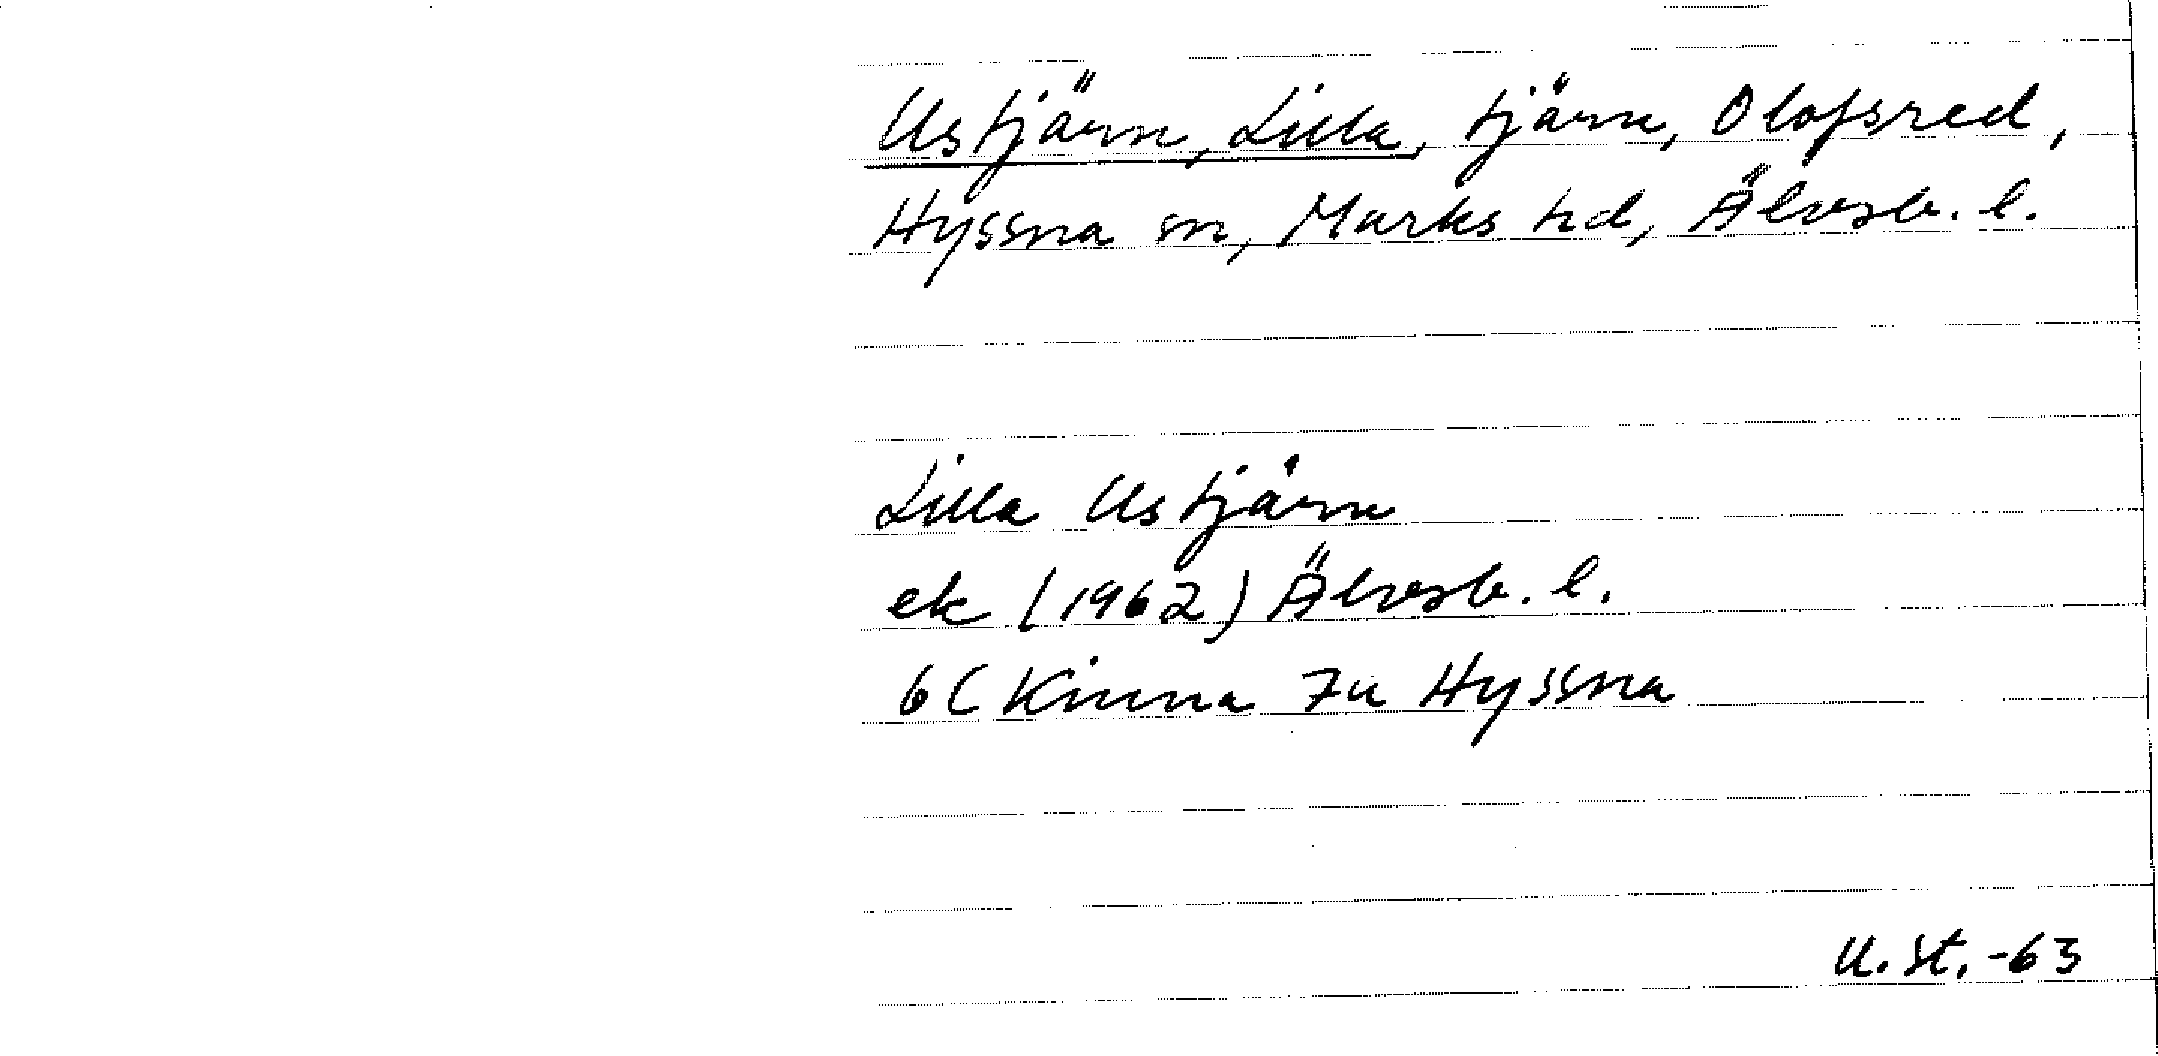 Ustjärn, Lilla, tjärn, Olofsred,
Hyssna sn, Marks hd, Älvsb. l.
Lilla Ustjärn
ek (1962) Älvsb. l.
6C Kinna 7u Hyssna
U. St. -63